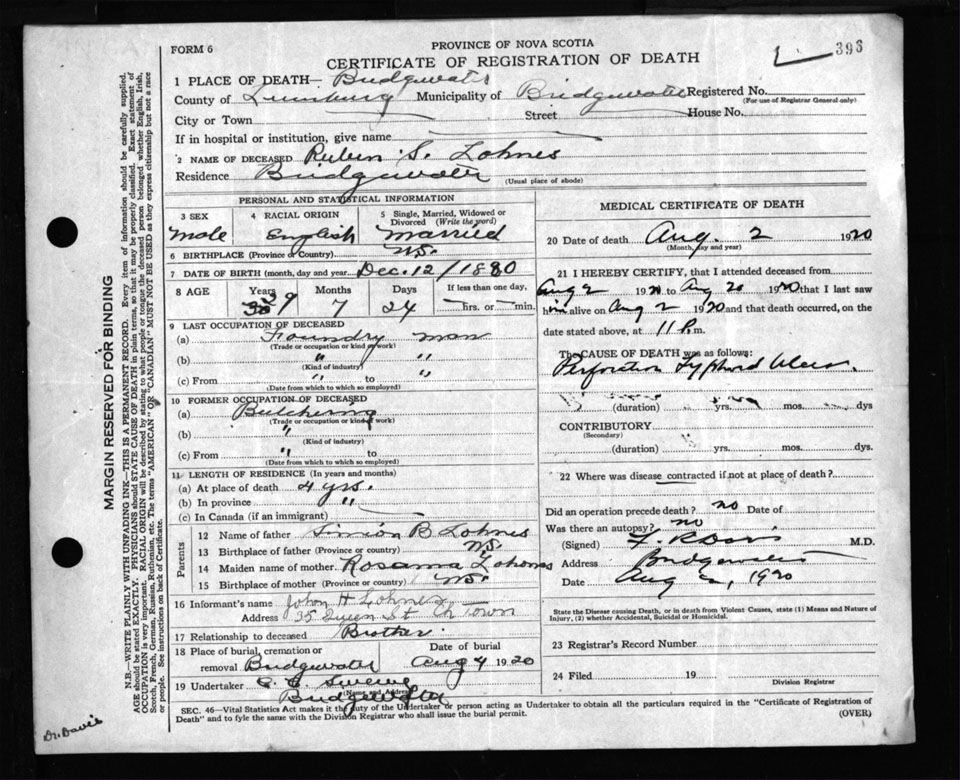 FORM 6
PROVINCE OF NOVA SCOTIA
CERTIFICATE OF REGISTRATION OF DEATH
393
1 PLACE OF DEATH— Bridgewater
County of Lunenburg Municipality of Bridgewater Registered No.
(For use of Registrar General only)
City or Town Street House No.
If in hospital or institution, give name
2 NAME OF DECEASED Rubin S. Lohnes
Residence Bridgewater
(Usual place of abode)
PERSONAL AND STATISTICAL INFORMATION
3 SEX 4 RACIAL ORIGIN 5 Single, Married, Widowed or Divorced (Write the word)
Male English Married
6 BIRTHPLACE (Province or Country) N.S.
7 DATE OF BIRTH (month, day and year) Dec. 12/1880
8 AGE Years Months Days If less than one day,
39 7 24 hrs. or min.
9 LAST OCCUPATION OF DECEASED
(a) Foundry man
(Trade or occupation or kind of work)
(b) " "
(Kind of industry)
(c) From " to "
(Date from which to which so employed)
10 FORMER OCCUPATION OF DECEASED
(a) Butchering
(Trade or occupation or kind of work)
(b) "
(Kind of industry)
(c) From " to
(Date from which to which so employed)
11 LENGTH OF RESIDENCE (In years and months)
(a) At place of death 4 yrs.
(b) In province "
(c) In Canada (if an immigrant)
Parents
12 Name of father Simion B Lohnes
13 Birthplace of father (Province or country) N.S.
14 Maiden name of mother Rosanna Lohnes
15 Birthplace of mother (Province or country) N.S.
16 Informant's name John H Lohnes
Address 35 Queen St Ch Town
17 Relationship to deceased Brother
18 Place of burial, cremation or removal Bridgewater Date of burial Aug 4 1920
19 Undertaker
(Name and Address)
Bridgewater
MEDICAL CERTIFICATE OF DEATH
20 Date of death Aug. 2 1920
(Month, day and year)
21 I HEREBY CERTIFY, that I attended deceased from
Aug 2 1920 to Aug 20 1920 that I last saw
him alive on Aug 2 1920 and that death occurred, on the
date stated above, at 11 P.m.
The CAUSE OF DEATH was as follows:
Perforation Typhoid Ulcer.
(duration) yrs. mos. dys
CONTRIBUTORY
(Secondary)
(duration) yrs. mos. dys.
22 Where was disease contracted if not at place of death?
Did an operation precede death? no Date of
Was there an autopsy? no
(Signed) M.D.
Address Bridgewater
Date Aug 2, 1920
State the Disease causing Death, or in death from Violent Causes, state (1) Means and Nature of Injury, (2) whether Accidental, Suicidal or Homicidal.
23 Registrar's Record Number
24 Filed 19
Division Registrar
SEC. 46—Vital Statistics Act makes it the duty of the Undertaker or person acting as Undertaker to obtain all the particulars required in the "Certificate of Registration of Death" and to fyle the same with the Division Registrar who shall issue the burial permit.
(OVER)
MARGIN RESERVED FOR BINDING
N.B.—WRITE PLAINLY WITH UNFADING INK—THIS IS A PERMANENT RECORD. Every item of information should be carefully supplied.
AGE should be stated EXACTLY. PHYSICIANS should STATE CAUSE OF DEATH in plain terms, so that it may be properly classified. Exact statement of
OCCUPATION is very important. RACIAL ORIGIN will be described by stating to what people or tongue the deceased person belonged whether English, Irish,
Scotch, French, German, Russian, Ruthenian, etc. The terms "AMERICAN" OR "CANADIAN" MUST NOT BE USED as they express citizenship but not a race
or people. See instructions on back of Certificate.
Dr. Davis